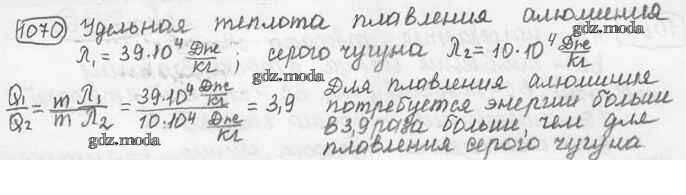 1070 Удельная теплота плавления алюминия
λ₁ = 39·10⁴ Дж/кг; серого чугуна λ₂ = 10·10⁴ Дж/кг
gdz.moda
gdz.moda
Q₁/Q₂ = m λ₁/m λ₂ = 39·10⁴ Дж/кг / 10·10⁴ Дж/кг = 3,9
gdz.moda
Для плавления алюминия
потребуется энергии больши
в 3,9 раза больши, чем для
плавления серого чугуна.
gdz.moda